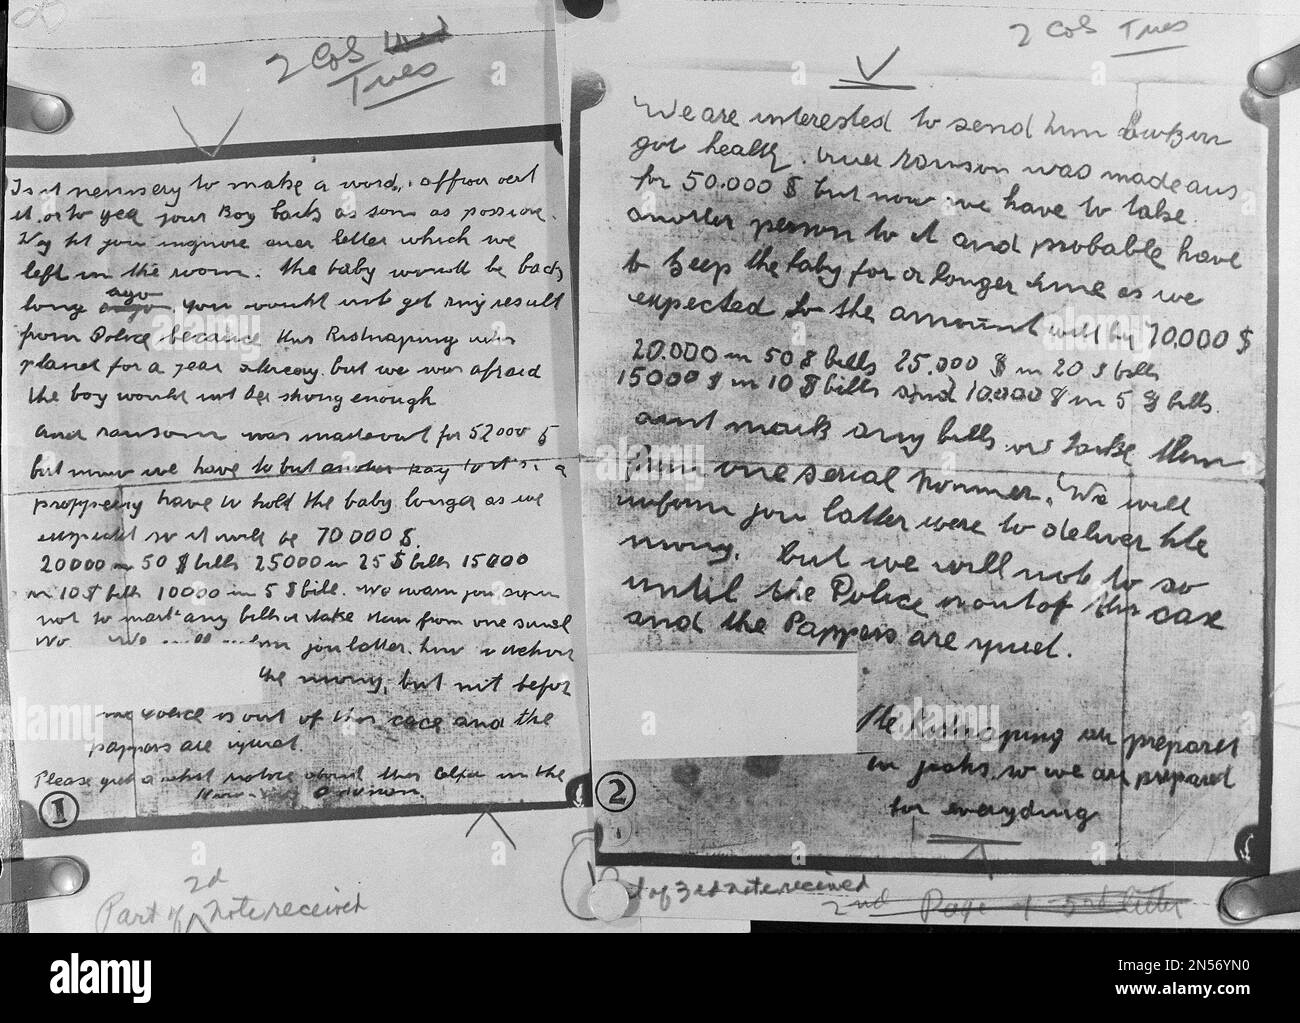 2 Cols Wed
Tues
Is it nessisery to make a word,
it. or to yea your Boy back as soon as possible.
Way tit you ingnore ouer letter which we
left in the room. the baby would be back
long ago ago. you would not get any result
from Police because this Kidnaping was
planet for a year allready. but we was afraid
the boy would not be strong enough
Ouer ransom was madeout for 50000 $
but now we have to but another
propperly have to hold the baby longer as we
expected so it will be 70000 $.
20000 in 50 $ bills 25000 in 25 $ bills 15000
in 10 $ bills 10000 in 5 $ bills. We warn you again
not to mark any bills or take them from one serial
No. We will inform you latter. how to deliver
the mony, but not befor
the Police is out of this cace and the
pappers are iquiet.
Please get a short notice about this in the
1
Part of 2d note received
2 Cols Tues
We are interested to send him back in
gut health. ouer ransom was made aus
for 50.000 $ but now we have to take
another person to it and probable have
to keep the baby for a longer time as we
expected So the amount will by 70000 $
20.000 in 50 $ bills 25.000 $ in 20 $ bills
15000 $ in 10 $ bills and 10.000 $ in 5 $ bills.
dont mark any bills. or take them
from one serial nommer. We will
inform you latter were to deliver the
mony. but we will not to so
until the Police is out of this case
and the Pappers are quiet.
The Kidnaping
in yeahs. so we are prepared
for everyding
2
Part of 3rd note received
2nd Page of 3rd letter
alamy
Image ID: 2N56YN0
www.alamy.com